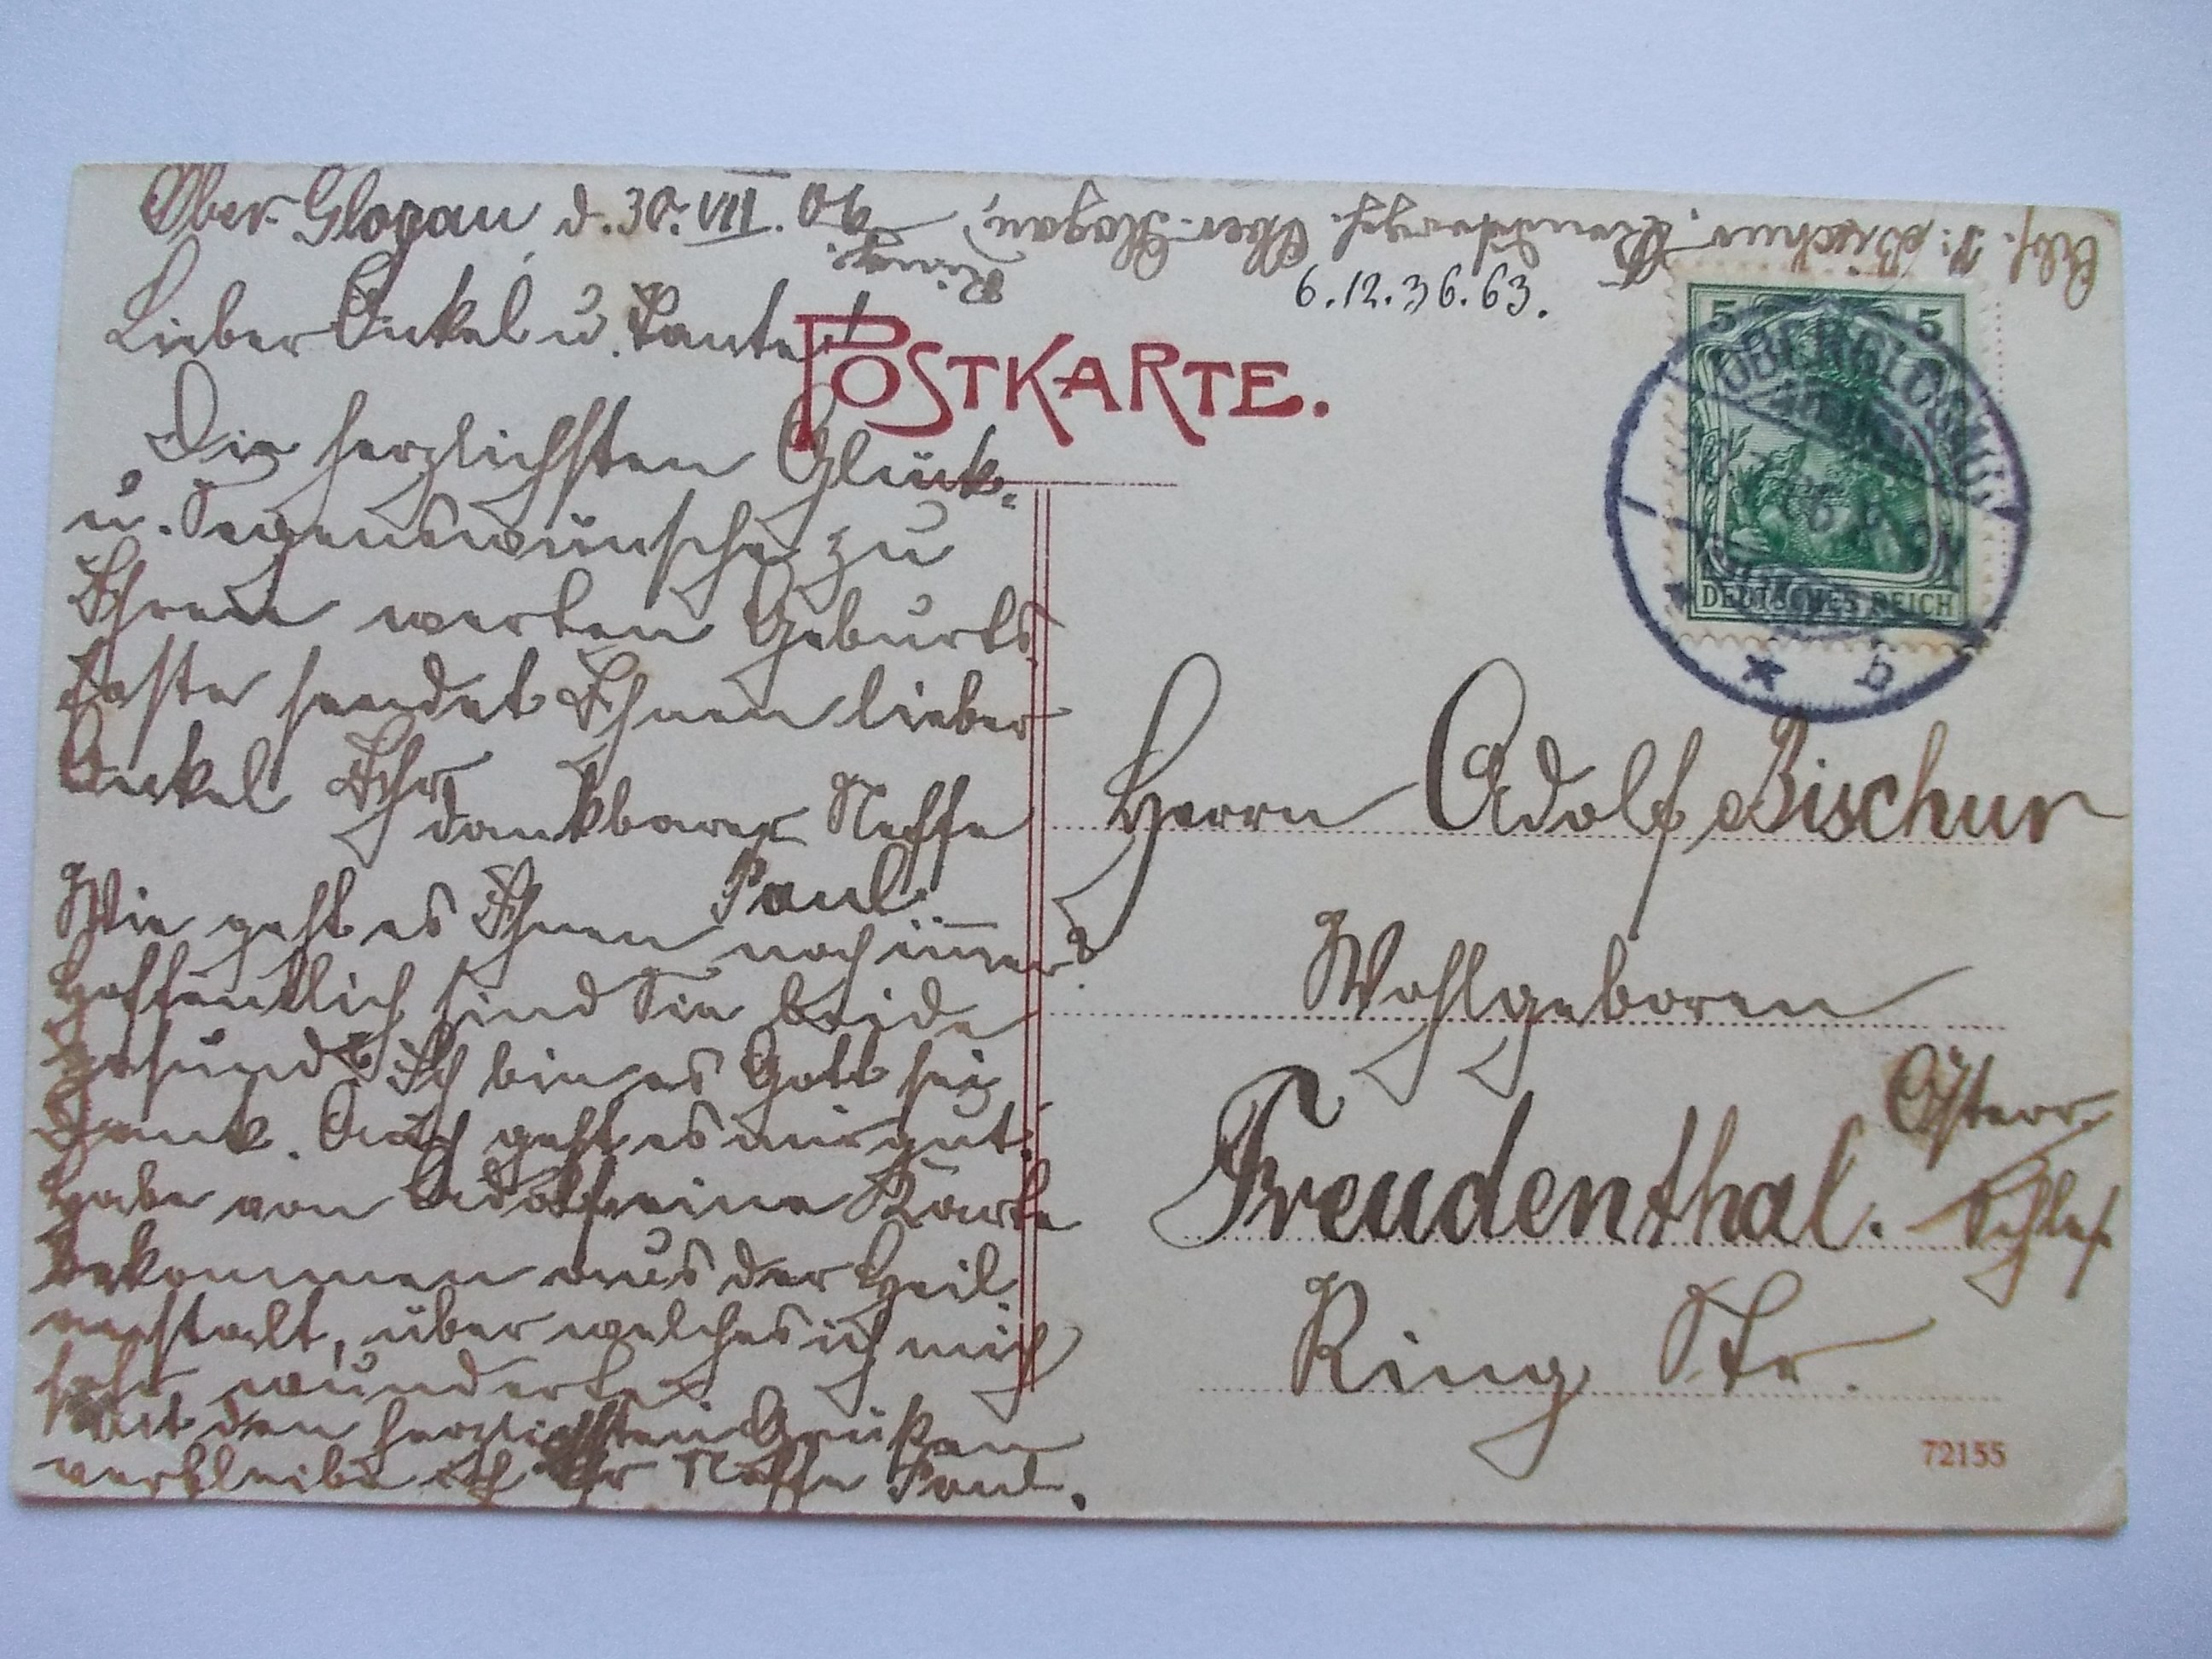 Ober-Glogau, d. 30. VII. 09
Lieber Onkel u. Tante!
Die herzlichsten Glück-
u. Segenswünsche zu
Ihrem werten Geburts
feste sendet Ihnen lieber
Onkel Ihr
dankbarer Neffe
Paul.
Wie geht es Ihnen noch immer?
Hoffentlich sind Sie beide
gesund. Ich bin es Gott sei
Dank. Auch geht es mir gut.
Habe von Adolf eine Karte
bekommen aus der Heil
anstalt, über welches ich mich
sehr wunderte.
Mit den herzlichsten Grüßen
verbleibe ich Ihr Neffe Paul.
Abs. P. Bischur, Ober-Glogau,
Ring.
6.12.36.63.
POSTKARTE.
5 5
DEUTSCHES REICH
OBERGLOGAU
* b
Herrn Adolf Bischur
Wohlgeboren
Freudenthal.
Österr.
Schles.
Ring Str.
72155